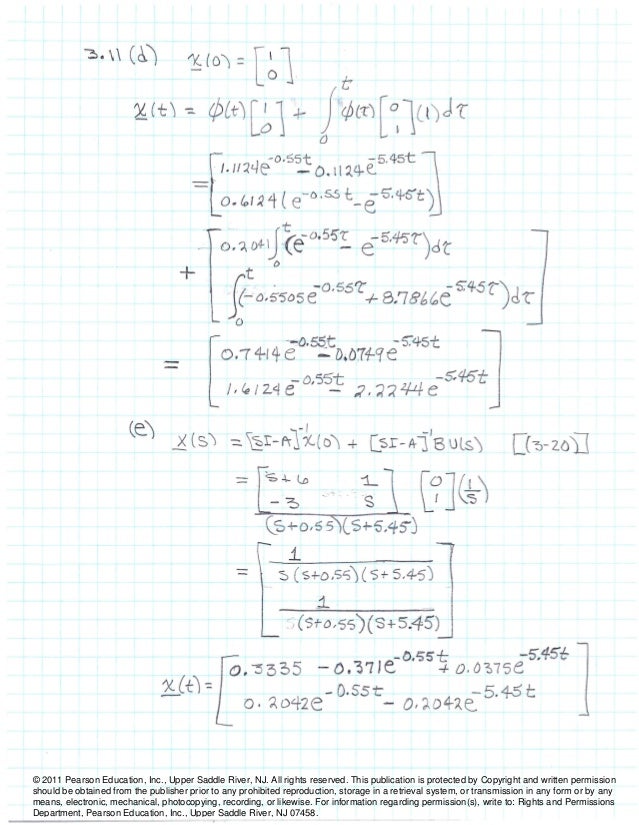 3.11 (d) x(0) = [1 0]
x(t) = φ(t) [1 0] + ∫₀ᵗ φ(τ) [0 1] (1) dτ
= [1.1124e^-0.55t - 0.1124e^-5.45t
0.6124 (e^-0.55t - e^-5.45t)]
+ [0.2041 ∫₀ᵗ (e^-0.55τ - e^-5.45τ) dτ
∫₀ᵗ (-0.5505e^-0.55τ + 8.7866e^-5.45τ) dτ]
= [0.7414e^-0.55t - 0.0749e^-5.45t
1.6124e^-0.55t - 2.2244e^-5.45t]
(e) X(s) = [sI-A]^-1 x(0) + [sI-A]^-1 B U(s) [(3-20)]
= [s+6 1
-3 s] [0 1] (1/s)
(s+0.55)(s+5.45)
= [1
s(s+0.55)(s+5.45)
1
s(s+0.55)(s+5.45)]
x(t) = [0.3335 - 0.371e^-0.55t + 0.0375e^-5.45t
0.2042e^-0.55t - 0.2042e^-5.45t]
© 2011 Pearson Education, Inc., Upper Saddle River, NJ. All rights reserved. This publication is protected by Copyright and written permission
should be obtained from the publisher prior to any prohibited reproduction, storage in a retrieval system, or transmission in any form or by any
means, electronic, mechanical, photocopying, recording, or likewise. For information regarding permission(s), write to: Rights and Permissions
Department, Pearson Education, Inc., Upper Saddle River, NJ 07458.